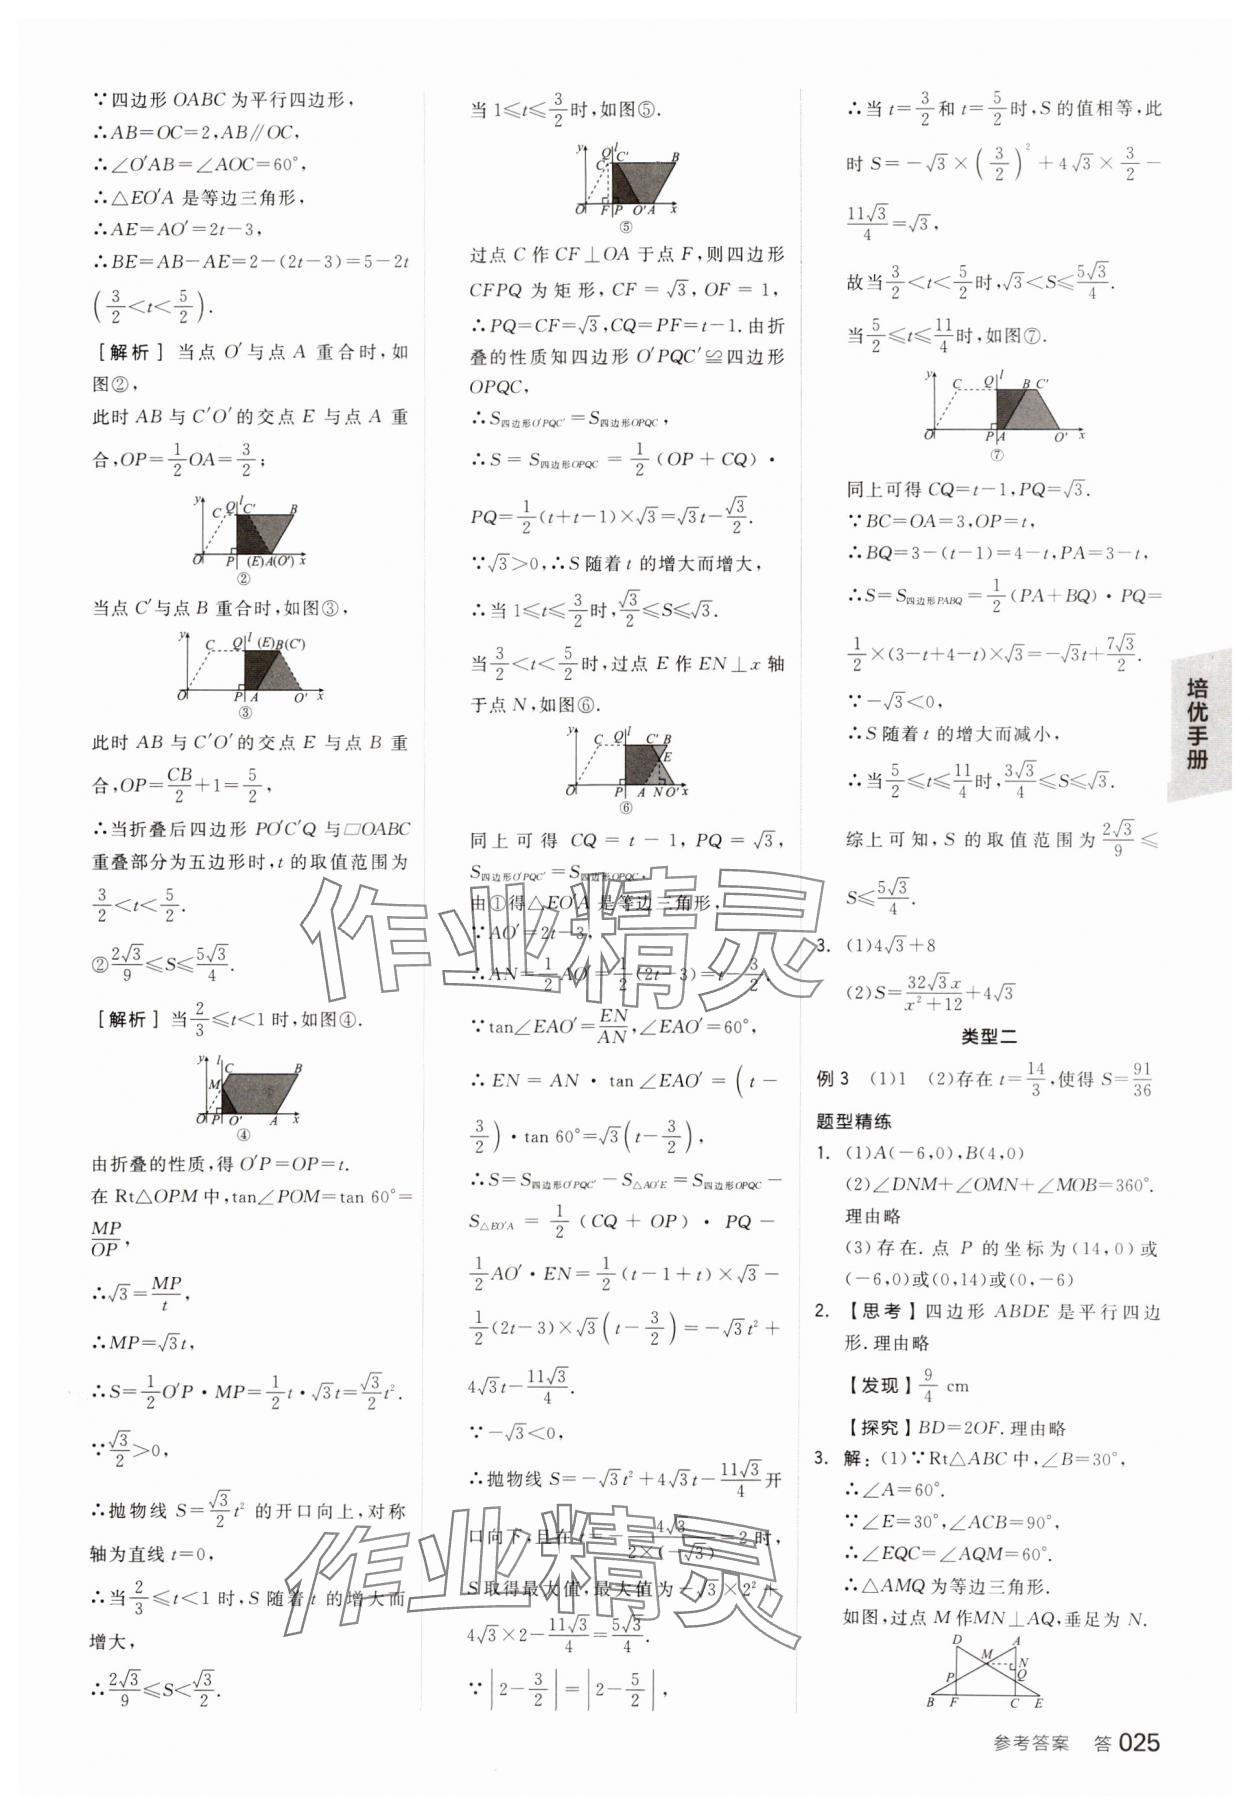 ∵四边形OABC为平行四边形,
∴AB=OC=2,AB∥OC,
∴∠O′AB=∠AOC=60°,
∴△EO′A是等边三角形,
∴AE=AO′=2t-3,
∴BE=AB-AE=2-(2t-3)=5-2t
(3/2<t<5/2).
[解析] 当点O′与点A重合时,如
图②,
此时AB与C′O′的交点E与点A重
合,OP=1/2OA=3/2;
y C Q l C′ B O P (E)A(O′) x
②
当点C′与点B重合时,如图③,
y C Q l (E)B(C′) O P A O′ x
③
此时AB与C′O′的交点E与点B重
合,OP=CB/2+1=5/2,
∴当折叠后四边形PO′C′Q与□OABC
重叠部分为五边形时,t的取值范围为
3/2<t<5/2.
②2√3/9≤S≤5√3/4.
[解析] 当2/3≤t<1时,如图④.
y l C B M O P O′ A x
④
由折叠的性质,得O′P=OP=t.
在Rt△OPM中,tan∠POM=tan 60°=
MP/OP,
∴√3=MP/t,
∴MP=√3t,
∴S=1/2O′P·MP=1/2t·√3t=√3/2t².
∵√3/2>0,
∴抛物线S=√3/2t²的开口向上,对称
轴为直线t=0,
∴当2/3≤t<1时,S随着t的增大而
增大,
∴2√3/9≤S<√3/2.
当1≤t≤3/2时,如图⑤.
y Q l C C′ B O F P O′ A x
⑤
过点C作CF⊥OA于点F,则四边形
CFPQ为矩形,CF=√3,OF=1,
∴PQ=CF=√3,CQ=PF=t-1.由折
叠的性质知四边形O′PQC′≌四边形
OPQC,
∴S四边形O′PQC′=S四边形OPQC,
∴S=S四边形OPQC=1/2(OP+CQ)·
PQ=1/2(t+t-1)×√3=√3t-√3/2.
∵√3>0,∴S随着t的增大而增大,
∴当1≤t≤3/2时,√3/2≤S≤√3.
当3/2<t<5/2时,过点E作EN⊥x轴
于点N,如图⑥.
y C Q l C′ B E O P A N O′ x
⑥
同上可得CQ=t-1,PQ=√3,
S四边形O′PQC′=S四边形OPQC,
由①得△EO′A是等边三角形,
∵AO′=2t-3,
∴AN=1/2AO′=1/2(2t-3)=t-3/2.
∵tan∠EAO′=EN/AN,∠EAO′=60°,
∴EN=AN·tan∠EAO′=(t-
3/2)·tan 60°=√3(t-3/2),
∴S=S四边形O′PQC′-S△AO′E=S四边形OPQC-
S△EO′A=1/2(CQ+OP)·PQ-
1/2AO′·EN=1/2(t-1+t)×√3-
1/2(2t-3)×√3(t-3/2)=-√3t²+
4√3t-11√3/4.
∵-√3<0,
∴抛物线S=-√3t²+4√3t-11√3/4开
口向下,且在t=-4√3/2×(-√3)=2时,
S取得最大值,最大值为-√3×2²+
4√3×2-11√3/4=5√3/4.
∵|2-3/2|=|2-5/2|,
∴当t=3/2和t=5/2时,S的值相等,此
时S=-√3×(3/2)²+4√3×3/2-
11√3/4=√3,
故当3/2<t<5/2时,√3<S≤5√3/4.
当5/2≤t≤11/4时,如图⑦.
y C Q l B C′ O P A O′ x
⑦
同上可得CQ=t-1,PQ=√3.
∵BC=OA=3,OP=t,
∴BQ=3-(t-1)=4-t,PA=3-t,
∴S=S四边形PABQ=1/2(PA+BQ)·PQ=
1/2×(3-t+4-t)×√3=-√3t+7√3/2.
∵-√3<0,
∴S随着t的增大而减小,
∴当5/2≤t≤11/4时,3√3/4≤S≤√3.
综上可知,S的取值范围为2√3/9≤
S≤5√3/4.
3. (1)4√3+8
(2)S=32√3x/x²+12+4√3
类型二
例3 (1)1 (2)存在t=14/3,使得S=91/36
题型精练
1. (1)A(-6,0),B(4,0)
(2)∠DNM+∠OMN+∠MOB=360°.
理由略
(3)存在.点P的坐标为(14,0)或
(-6,0)或(0,14)或(0,-6)
2. 【思考】四边形ABDE是平行四边
形.理由略
【发现】9/4 cm
【探究】BD=2OF.理由略
3. 解:(1)∵Rt△ABC中,∠B=30°,
∴∠A=60°.
∵∠E=30°,∠ACB=90°,
∴∠EQC=∠AQM=60°.
∴△AMQ为等边三角形.
如图,过点M作MN⊥AQ,垂足为N.
D A M N P Q B F C E
培优手册
作业精灵
作业精灵
参考答案 答025